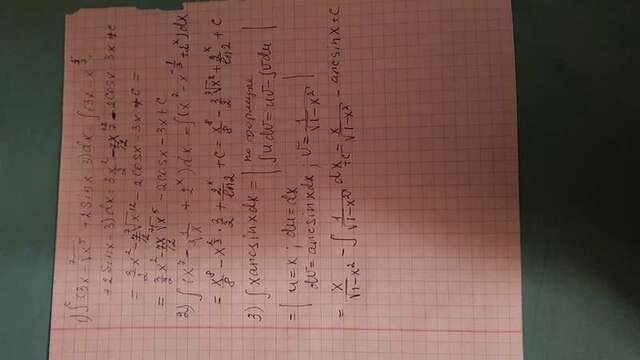 1) ∫(3x - ⁷√x⁵ + 2sinx - 3)dx = ∫(3x - x^(5/7) +
+ 2sinx - 3)dx = 3x²/2 - 7x^(12/7)/12 - 2cosx - 3x + c
= 3/2 x² - 7/12 ⁷√x¹² - 2cosx - 3x + c =
= 3/2 x² - 7x/12 ⁷√x⁵ - 2cosx - 3x + c.
2) ∫(x⁷ - 1/³√x + 2ˣ)dx = ∫(x⁷ - x^(-1/3) + 2ˣ)dx
= x⁸/8 - x^(2/3) · 3/2 + 2ˣ/ln2 + c = x⁸/8 - 3/2 ³√x² + 2ˣ/ln2 + c
3) ∫xarcsinxdx = | по формуле
∫udv = uv - ∫vdu |
= | u = x ; du = dx
dv = arcsinxdx ; v = 1/√(1-x²) |
= x/√(1-x²) - ∫ 1/√(1-x²) dx + c = x/√(1-x²) - arcsinx + c